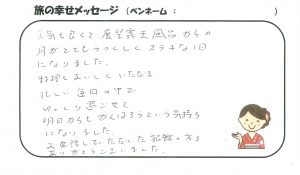 旅の幸せメッセージ（ペンネーム：　　　）
天気もよくて展望露天風呂からの
月がとてもうつくしくステキな1日
になりました。
お料理もおいしくいただき
忙しい毎日の中で
ゆっくり過ごせて
明日からもがんばろうという気持ち
になりました。
お世話していただいた旅館の方々
ありがとうございました。